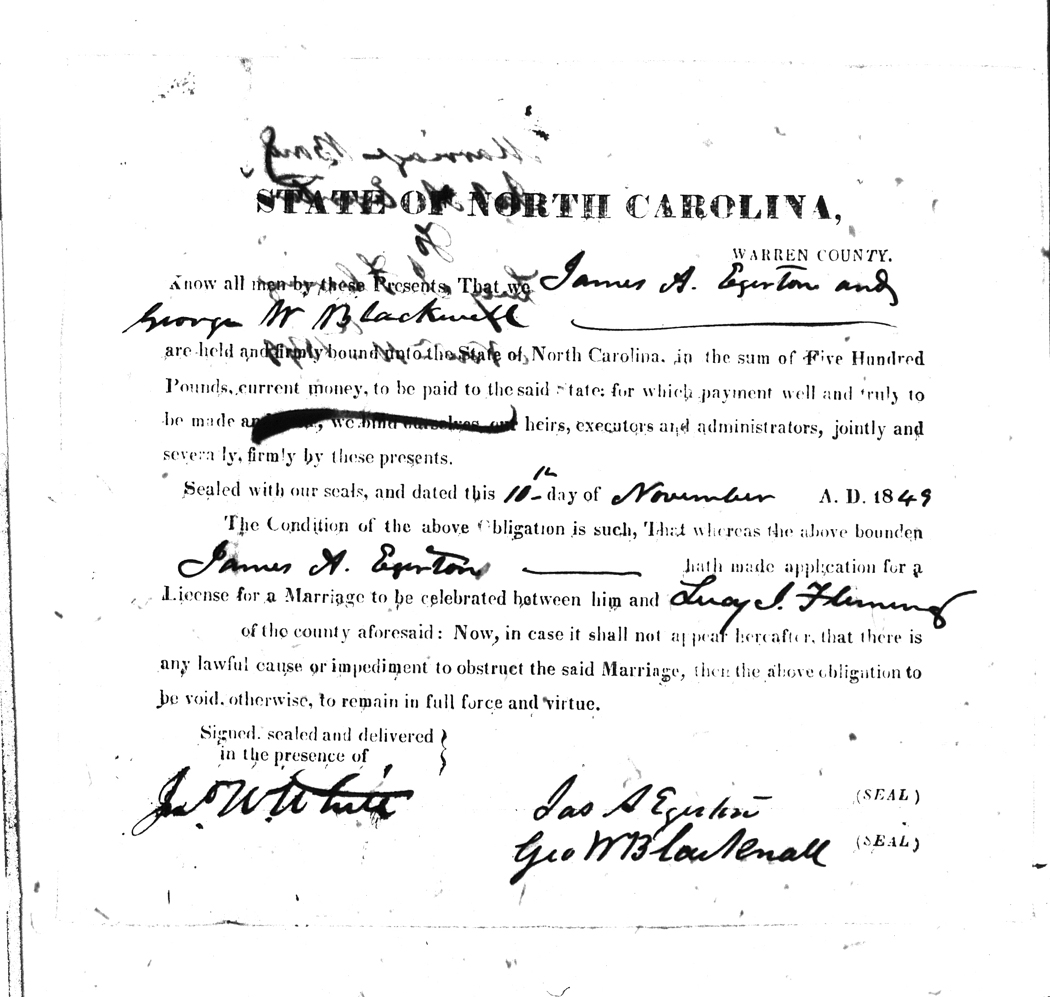 Marriage Bond
STATE OF NORTH CAROLINA,
To
WARREN COUNTY.
Know all men by these Presents, That we James A. Egerton and
George W Blackwell
are held and firmly bound unto the State of North Carolina, in the sum of Five Hundred
Pounds, current money, to be paid to the said State; for which payment well and truly to
be made and , we bind ourselves, our heirs, executors and administrators, jointly and
severally, firmly by these presents.
Sealed with our seals, and dated this 10th day of November A. D. 1849
The Condition of the above Obligation is such, That whereas the above bounden
James A. Egerton hath made application for a
License for a Marriage to be celebrated between him and Lucy J. Fleming
of the county aforesaid: Now, in case it shall not appear hereafter, that there is
any lawful cause or impediment to obstruct the said Marriage, then the above obligation to
be void, otherwise, to remain in full force and virtue.
Signed, sealed and delivered
in the presence of
Jno. W. White
Jas A Egerton (SEAL)
Geo W Blacknall (SEAL)